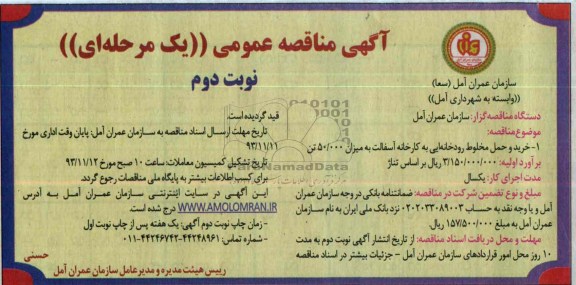 آگهی مناقصه عمومی ((یک مرحله‌ای))
نوبت دوم
سازمان عمران آمل (سعا)
((وابسته به شهرداری آمل))
دستگاه مناقصه‌گزار: سازمان عمران آمل
موضوع مناقصه:
۱- خرید و حمل مخلوط رودخانه‌ایی به کارخانه آسفالت به میزان ۵۰/۰۰۰ تن
برآورد اولیه: ۳/۱۵۰/۰۰۰/۰۰۰ ریال بر اساس تناژ
مدت اجرای کار: یکسال
مبلغ و نوع تضمین شرکت در مناقصه: ضمانتنامه بانکی در وجه سازمان عمران
آمل و یا وجه نقد به حساب ۰۲۰۲۰۳۳۰۸۹۰۰۳ نزد بانک ملی ایران به نام سازمان
عمران آمل به مبلغ ۱۵۷/۵۰۰/۰۰۰ ریال.
مهلت و محل دریافت اسناد مناقصه: از تاریخ انتشار آگهی نوبت دوم به مدت
۱۰ روز محل امور قراردادهای سازمان عمران آمل - جزئیات بیشتر در اسناد مناقصه
قید گردیده است.
تاریخ مهلت ارسال اسناد مناقصه به سازمان عمران آمل: پایان وقت اداری مورخ
۹۳/۱۱/۱۱
تاریخ تشکیل کمیسیون معاملات: ساعت ۱۰ صبح مورخ ۹۳/۱۱/۱۲
برای کسب اطلاعات بیشتر به پایگاه ملی مناقصات رجوع گردد.
این آگهی در سایت اینترنتی سازمان عمران آمل به آدرس
WWW.AMOLOMRAN.IR درج شده است.
- زمان چاپ نوبت دوم آگهی: یک هفته پس از چاپ نوبت اول
- شماره تماس: ۴۴۲۴۸۹۶۱-۴۴۲۴۶۷۴۲-۰۱۱
حسنی
رییس هیئت مدیره و مدیرعامل سازمان عمران آمل